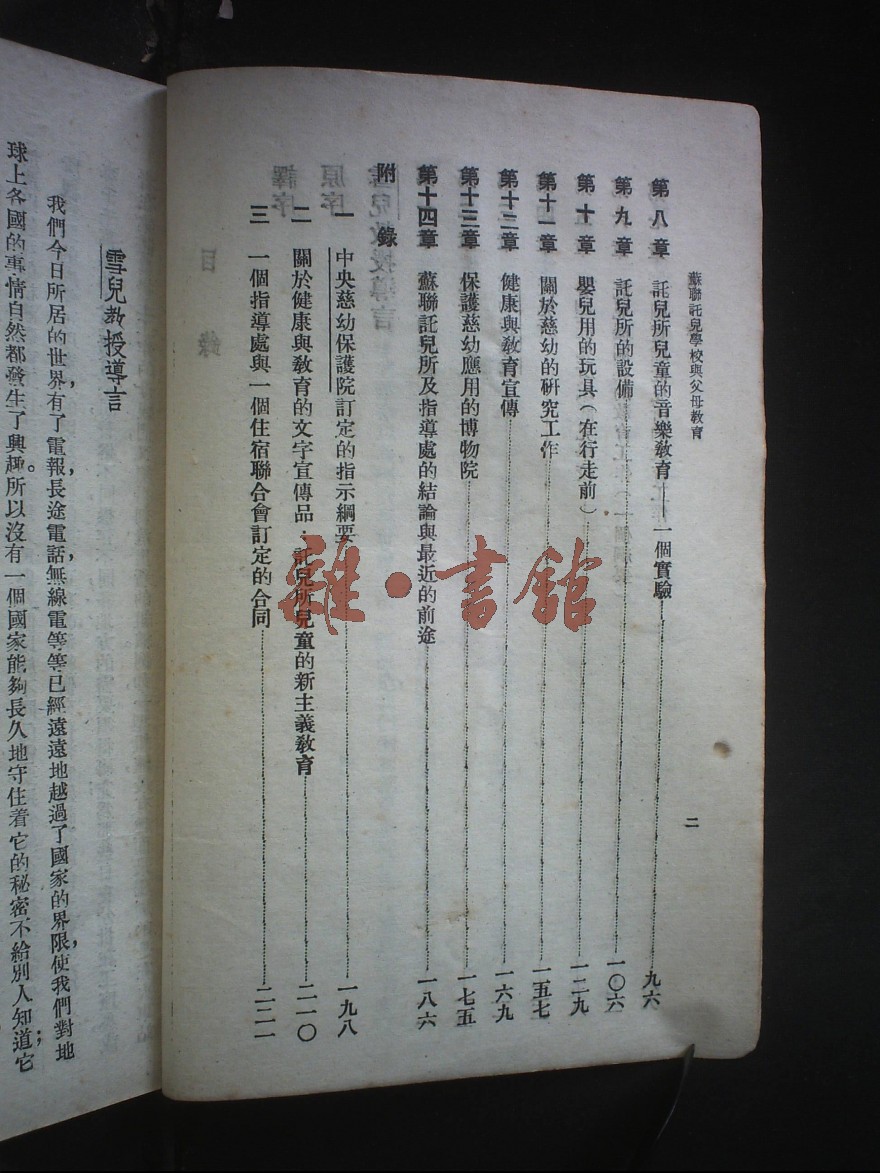 蘇聯託兒學校與父母教育
二
第八章 託兒所兒童的音樂教育——一個實驗 九六
第九章 託兒所的設備 一〇六
第十章 嬰兒用的玩具(在行走前) 一二九
第十一章 關於慈幼的研究工作 一五七
第十二章 健康與教育宣傳 一六九
第十三章 保護慈幼應用的博物院 一七五
第十四章 蘇聯託兒所及指導處的結論與最近的前途 一八六
附錄
一 中央慈幼保護院訂定的指示綱要 一九八
二 關於健康與教育的文字宣傳品:託兒所兒童的新主義教育 二一〇
三 一個指導處與一個住宿聯合會訂定的合同 二二一
雪兒教授導言
我們今日所居的世界,有了電報,長途電話,無線電等等,已經遠遠地越過了國家的界限,使我們對地
球上各國的事情自然都發生了興趣。所以沒有一個國家能夠長久地守住着它的秘密不給別人知道;它
雜·書館